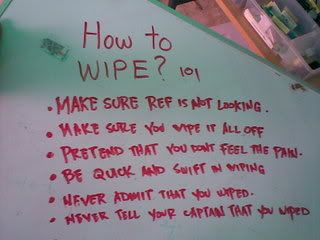 How to
WIPE? 101
• MAKE SURE REF IS NOT LOOKING.
• MAKE SURE YOU WIPE IT ALL OFF
• PRETEND THAT YOU DON'T FEEL THE PAIN.
• BE QUICK AND SWIFT IN WIPING
• NEVER ADMIT THAT YOU WIPED.
• NEVER TELL YOUR CAPTAIN THAT YOU WIPED